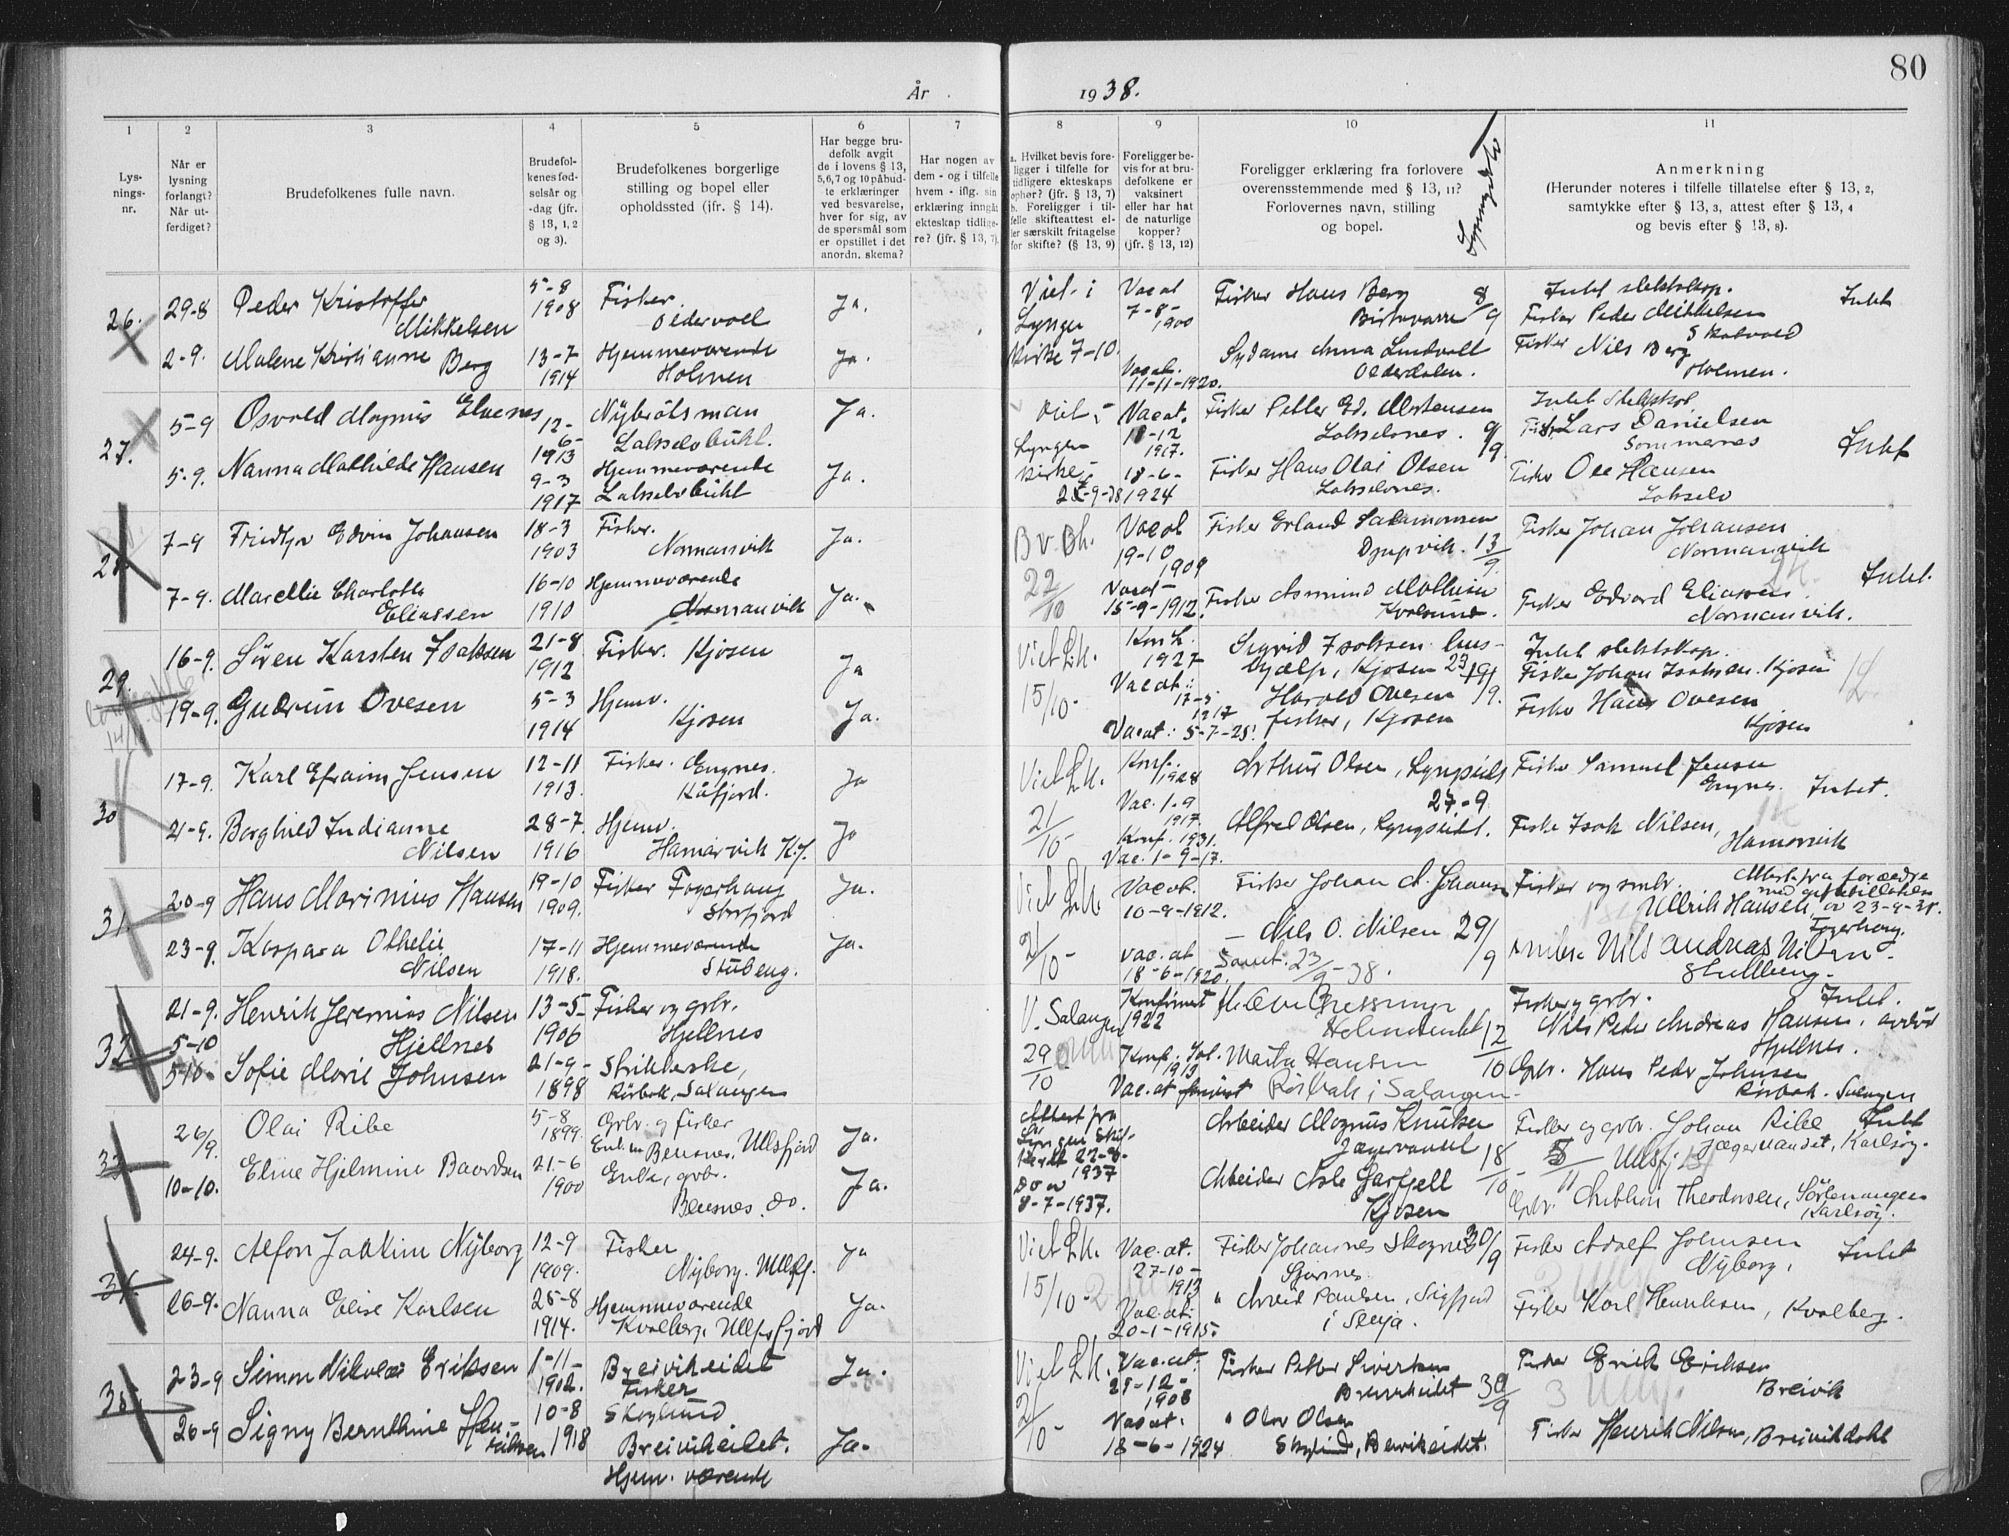 80
År 1938.
1 2 3 4 5 6 7 8 9 10 11
Lys-
nings-
nr.
Når er
lysning
forlangt?
Når ut-
ferdiget?
Brudefolkenes fulle navn.
Brudefol-
kenes fød-
selsår og
-dag (jfr.
§ 13, 1, 2
og 3).
Brudefolkenes borgerlige
stilling og bopel eller
opholdssted (jfr. § 14).
Har begge bru-
defolk avgit
de i lovens § 13,
5,6,7 og 10 påbud-
te erklæringer
ved besvarelse,
hver for sig, av
de spørsmål som
er opstillet i det
anordn. skema?
Har nogen av
dem - og i tilfelle
hvem - iflg. sin
erklæring inngått
ekteskap tidlige-
re? (jfr. § 13, 7).
a. Hvilket bevis fore-
ligger i tilfelle for
tidligere ekteskaps
ophør? (jfr. § 13, 7)
b. Foreligger i til-
felle skifteattest el-
ler særskilt fritagelse
for skifte? (§ 13, 9)
Foreligger be-
vis for at bru-
defolkene er
vaksinert
eller har hat
de naturlige
kopper?
(jfr. § 13, 12)
Foreligger erklæring fra forlovere
overensstemmende med § 13, 11?
Forlovernes navn, stilling
og bopel.
Anmerkning
(Herunder noteres i tilfelle tillatelse efter § 13, 2,
samtykke efter § 13, 3, attest efter § 13, 4
og bevis efter § 13, 8).
26. 29-8 Peder Kristoffer
Mikkelsen
5-8
1908
Fisker.
Oldervoll
Ja.
Viel. i
Lyngen
Kirke 7-10.
Vac at
7-8-
1900
Fisker Hans Berg
Birtavarre 8/9
Intet slektskap.
Fisker Peder Mikkelsen
Skalvold
Intet
2-9. Malene Kristianne
Berg
13-7
1914
Hjemmeværende
Holmen
Ja.
Vac at.
11-11-1920.
Sydame Anna Lindvall
Olderdalen.
Fisker Nils Berg
Holmen.
27. 5-9 Osvald Magnus Elvenes
12-
6-
1913
Nybrotsman
Lakselvbukt.
Ja.
Viet i
Lyngen
Kirke
-9-38
Vac at.
18-12
1917.
Fisker Petter Ed. Mortensen
Lakselvnes. 9/9.
Intet slektskap
Fisker Lars Danielsen
Sommernes
Intet
5-9. Nanna Mathilde Hansen
9-3
1917
Hjemmeværende
Lakselvbukt
Ja.
18-6-
1924
Fisker Hans Olai Olsen
Lakselvnes.
Fisker Ole Hansen
Lakselv
28 7-9 Fridtjov Edvin Johansen
18-3
1903
Fisker.
Normannvik
Ja.
22/10
Vac at
19-10
1909
Fisker Erland Salamonsen
Djupvik. 13/9
Fisker Johan Johansen
Normannvik
Intet.
7-9. Marellie Charlotte
Eliassen
16-10
1910
Hjemmeværende
Normannvik
Ja.
Vac at
15-9-1912.
Fisker Asmund Mathisen
Kvalsund.
Fisker Edvard Eliassen
Normannvik.
29. 16-9. Søren Karsten Isaksen
21-8
1912
Fisker. Kjosen
Ja
Viet L.K.
15/10-
Konf.
1927
Vac at:
17-5
1917
Sigrid Isaksen hus-
hjælp, Kjosen
Intet slektskap.
Fisker Johan Isaksen. Kjosen
19-9. Gudrun Ovesen
5-3
1914
Hjemv.
Kjosen
Ja.
Vac at: 5-7-25.
Harald Ovesen
fisker, Kjosen
Fisker Hans Ovesen
Kjosen
30 17-9. Karl Efraim Jensen
12-11
1913.
Fisker. Engnes.
Kåfjord.
Ja
Viet L.K.
21/10-
Konf.
1928
Vac. 1-9
1917.
Arthur Olsen, Lyngseidet
27-9
Fisker Samuel Jensen
Engnes.
Intet.
21-9. Borghild Indianne
Nilsen
28-7.
1916
Hjemv.
Hamarvik K.fj.
Ja
Konf. 1931.
Vac. 1-9-17.
Alfred Olsen, Lyngseidet.
Fisker Isak Nilsen,
Hamarvik
31. 20-9 Hans Marinius Hansen
19-10
1909.
Fisker Fagerhaug
Storfjord
Ja.
Viet L.K.
2/10-
Vac at.
10-9-1912.
Fisker Johan A. Johansen
Fisker og smbr.
Attest fra foreldre
Ullrik Hansen av 23-9-38.
Fagerhaug.
23-9. Kaspara Othelie
Nilsen
17-11
1918.
Hjemmeværende
Stubeng.
Ja.
vac. at
18-6-1920.
Nils O. Nilsen 29/9
Samt. 23/9-38.
Nils Andreas Nilsen
32 21-9.
5-10
Henrik Jeremias Nilsen
Hjellnes
13-5-
1906
Fisker og grbr.
Hjellnes
V. Salangen
29/10
Konfirmert
1922
12/10
Fisker og grbr.
Intet.
Nils Peder Andreas Hansen, avdød
Hjellnes.
5-10. Sofie Marie Johnsen
21-9-
1898
Strikkerske,
Rørbak, Salangen
Konf. Sal.
1913
Vac. at
Marta Hansen
Rørbak i Salangen.
Grbr. Hans Peder Johnsen
Rørbak. Salangen
33 26/9. Olai Ribe
5-8
1899.
Grbr. og fisker
Enkem. Bensnes. Ullsfjord
Ja.
Attest fra
Lyngen skif-
terett 27-8-
1937
Do av
8-7-1937.
Arbeider Magnus Knutsen
Jægervandet 18/10-
Fisker og grbr. Johan Ribe Intet
Jægervandet, Karlsøy.
10-10. Eline Hjelmine Baardsen
21-6
1900
Enke, grbr.
Bensnes. do.
Ja.
Arbeider Asle Garfjell
Kjosen
Grbr. Theodorsen, Sørlenangen
Karlsøy.
34. 24-9. Alfon Joakim Nyborg
12-9
1909.
Fisker
Nyborg. Ullsfj.
Ja
Viet L.K.
15/10-
Vac. at.
27-10-
1913
Fisker Johannes Skognes 30/9
Sjursnes
Fisker Adolf Johnsen
Nyborg,
Intet
26-9. Nanna Elise Karlsen
25-8
1914.
Hjemmeværende
Kvalberg. Ullsfjord
Ja.
Vac. at:
20-1-1915.
" Arvid Paulsen, Sigfjord
i Senja.
Fisker Karl Henriksen, Kvalberg.
35. 23-9 Simon Nikolai Eriksen
1-11-
1902.
Breivikeidet
Fisker
Ja.
Viet L.K.
2/10-
Vac. at.
29-12-
1908
Fisker Petter Sivertsen
Breivikeidet 30/9
Fisker Erik Eriksen
Breivik
26-9 Signy Bernthine Hen-
riksen
10-8
1918
Skoglund
Breivikeidet.
Hjem. værende
Ja.
Vac at.
18-6-1924
" Olav Olsen
Skoglund, Breivikeidet.
Fisker Henrik Nilsen, Breivikdahl